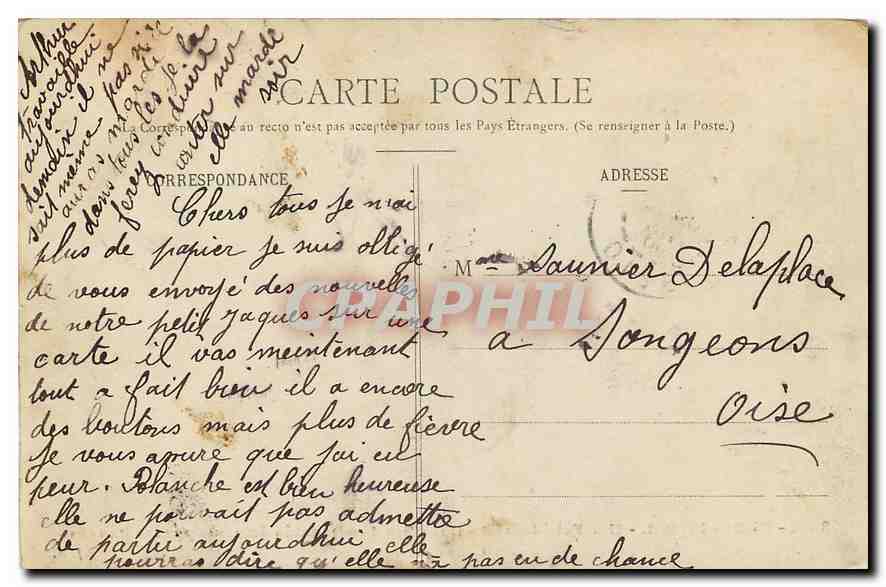 CARTE POSTALE
La Correspondance au recto n'est pas acceptée par tous les Pays Étrangers. (Se renseigner à la Poste.)
CORRESPONDANCE
ADRESSE
Chers tous je n'ai
plus de papier je suis obligé
de vous envoyé des nouvelles
de notre petit Jaques sur une
carte il vas meintenant
tout a fait bien il a encore
des boutons mais plus de fièvre
je vous assure que j'ai eu
peur. Blanche est bien heureuse
elle ne pouvait pas admettre
de partir aujourdhui elle
pourras dire qu'elle n'a pas eu de chance
Arthur
travaille
aujourdhui
demain il ne
sait même pas
auras mardi
dans tous les je la
ferey conduire
sur
elle mardi
soir
Mme Saunier Delaplace
a Songeons
Oise
CPAPHIL